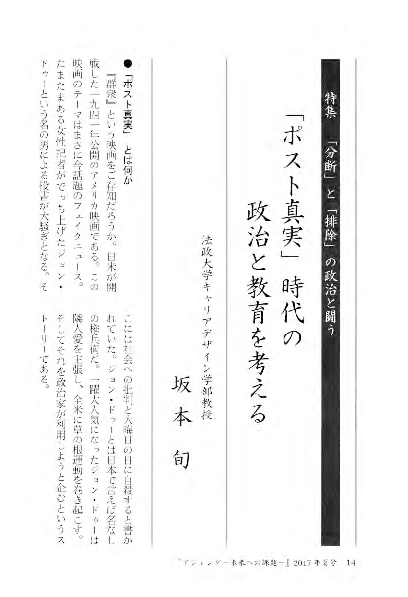 特集 「分断」と「排除」の政治と闘う
「ポスト真実」時代の
政治と教育を考える
法政大学キャリアデザイン学部教授
坂本 旬
●「ポスト真実」とは何か
『群衆』という映画をご存知だろうか。日米が開
戦した一九四一年公開のアメリカ映画である。この
映画のテーマはまさに今話題のフェイクニュース。
たまたまある女性記者がでっち上げたジョン・
ドゥーという名の男による投書が大騒ぎとなる。そ
こには社会への批判と大晦日の日に自殺すると書か
れていた。ジョン・ドゥーとは日本で言えば名なし
の権兵衛だ。一躍大人気になったジョン・ドゥーは
隣人愛を主張し、全米に草の根運動を巻き起こす。
そしてそれを政治家が利用しようと企むというス
トーリーである。
『アジェンダ－未来への課題－』2017年夏号 14